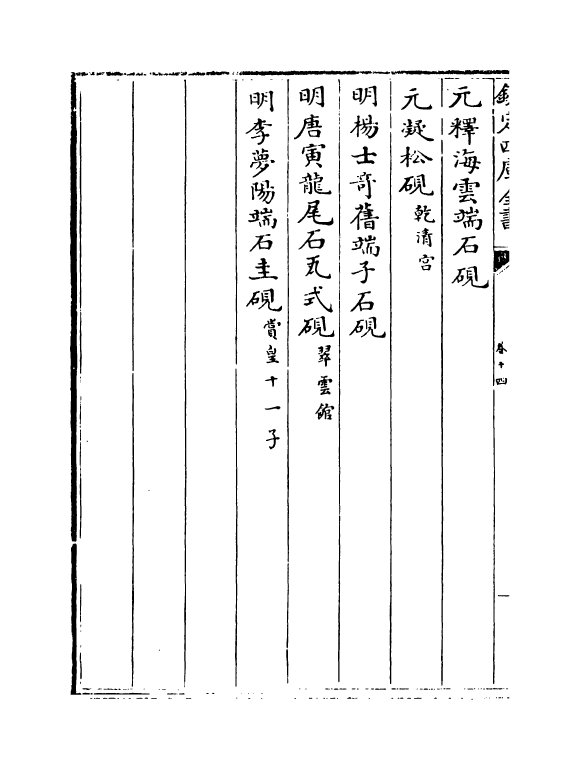 欽定四庫全書
卷十四
元釋海雲端石硯
元凝松硯 乾清宫
明楊士奇舊端子石硯
明唐寅龍尾石瓦式硯 翠雲館
明李夢陽端石圭硯 賞皇十一子